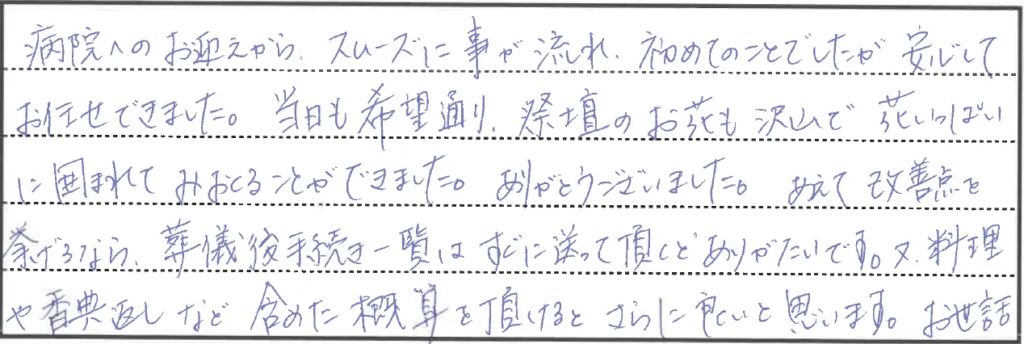 病院へのお迎えから、スムーズに事が流れ、初めてのことでしたが安心して
お任せできました。当日も希望通り、祭壇のお花も沢山で花いっぱい
に囲まれてみおくることができました。ありがとうございました。あえて改善点を
挙げるなら、葬儀後手続き一覧はすぐに送って頂くとありがたいです。又、料理
や香典返しなど含めた概算を頂けるとさらに良いと思います。お世話